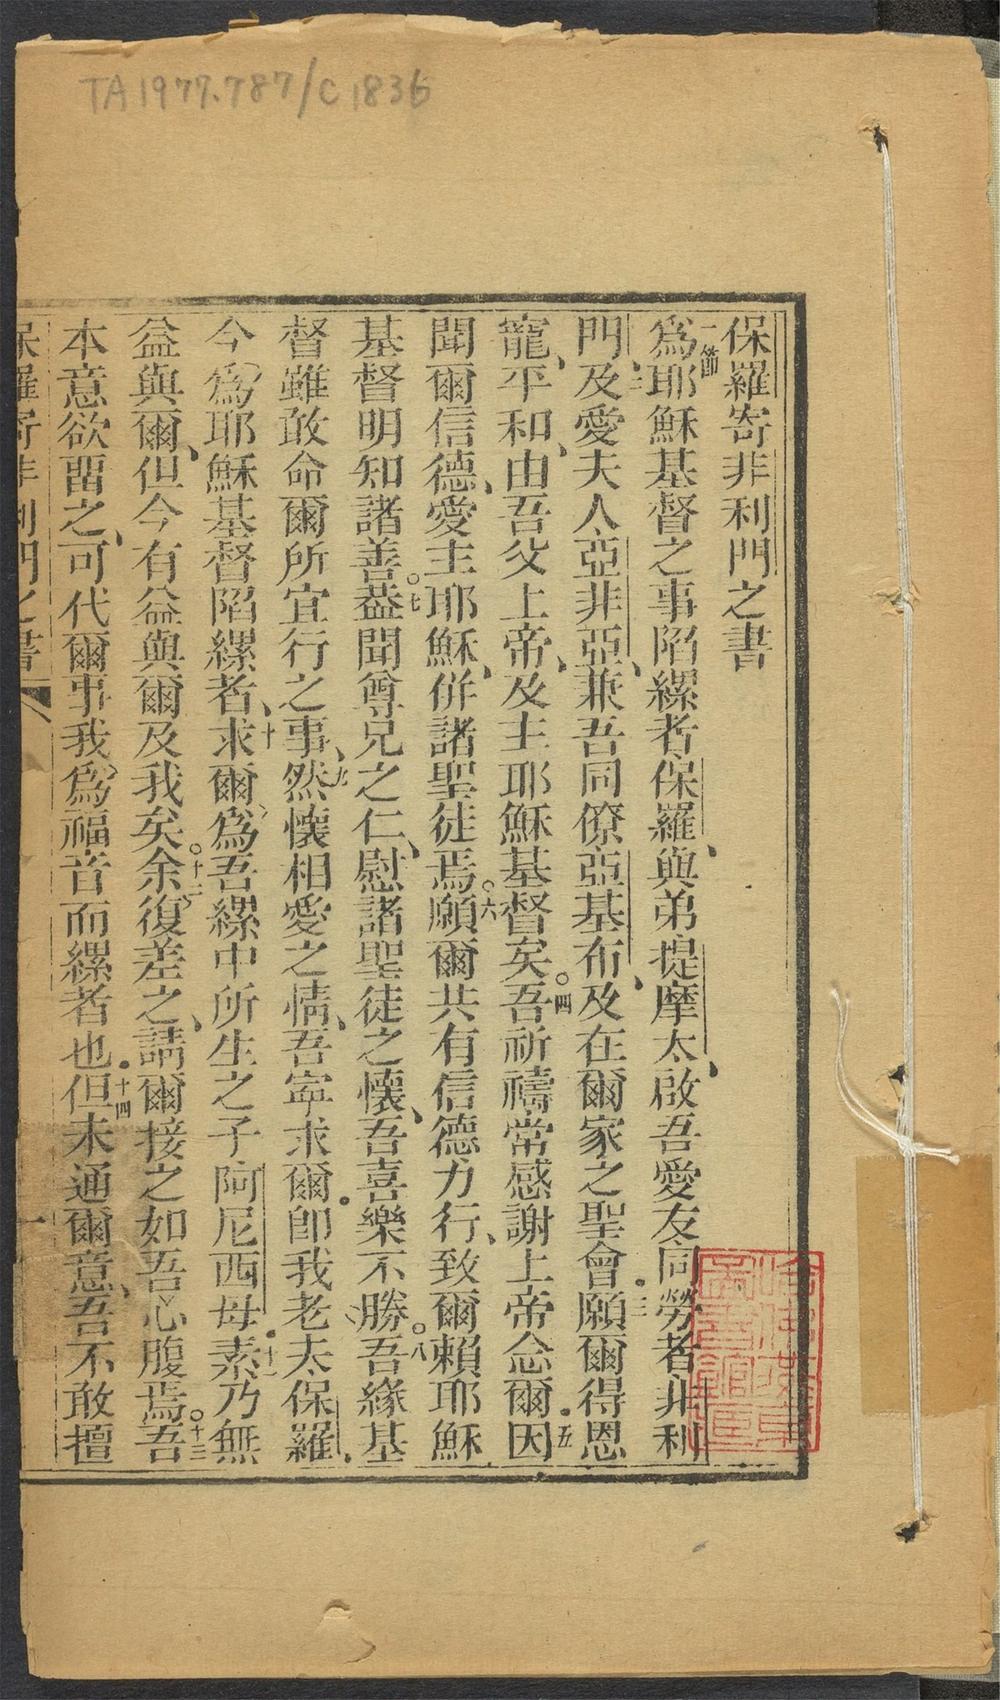 TA 1977.787/C1836
保羅寄非利門之書
一節爲耶穌基督之事陷縲者保羅、與弟提摩太、啟吾愛友同勞者非利
門、二及愛夫人亞非亞、兼吾同僚亞基布、及在爾家之聖會。三願爾得恩
寵、平和、由吾父上帝、及主耶穌基督矣。四吾祈禱常感謝上帝念爾。五因
聞爾信德、愛主耶穌、併諸聖徒焉。六願爾共有信德力行、致爾賴耶穌
基督明知諸善。七葢聞尊兄之仁、慰諸聖徒之懷、吾喜樂不勝。八吾緣基
督雖敢命爾所宜行之事、九然懷相愛之情、吾寧求爾。卽我老夫保羅、
今爲耶穌基督陷縲者、十求爾爲吾縲中所生之子阿尼西母。十一素乃無
益與爾、但今有益與爾及我矣。十二余復差之、請爾接之如吾心腹焉。十三吾
本意欲留之、可代爾事我爲福音而縲者也。十四但未通爾意、吾不敢擅
保羅寄非利門之書
一